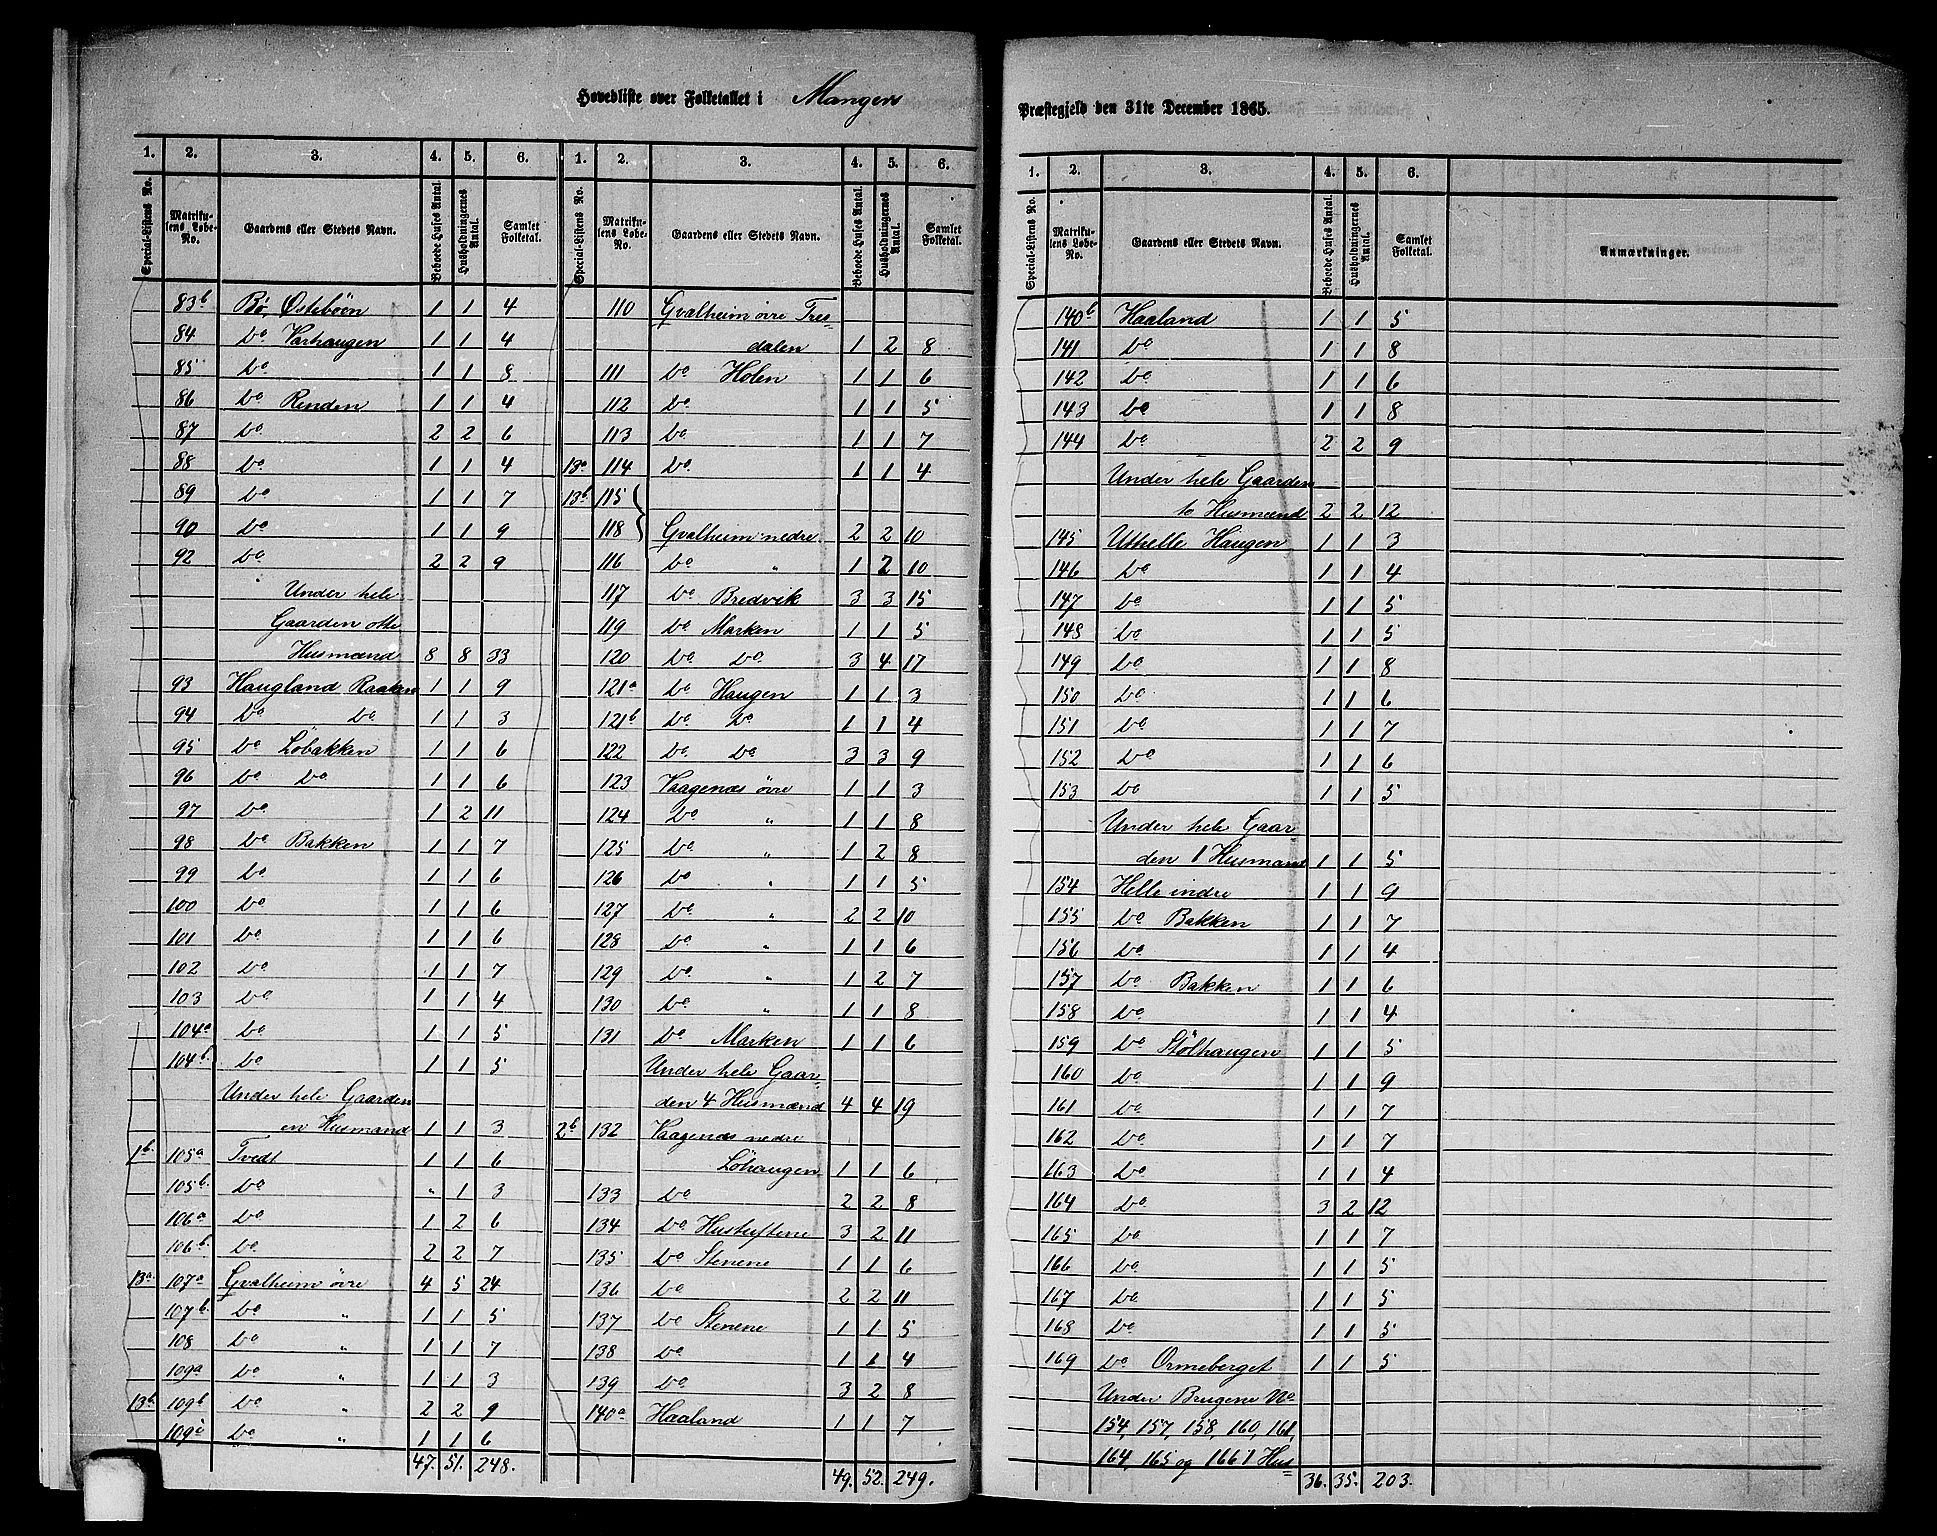 Hovedliste over Folketallet i Mangers
Præstegjeld den 31te December 1865.
1. 2. 3. 4. 5. 6. 1. 2. 3. 4. 5. 6.
Special-Listens No. Matrikulens Løbe-No. Gaardens eller Stedets Navn. Beboede Huses Antal. Husholdningernes Antal. Samlet Folketal. Special-Listens No. Matrikulens Løbe-No. Gaardens eller Stedets Navn. Beboede Huses Antal. Husholdningernes Antal. Samlet Folketal.
83b Bø, Østebøen 1 1 4
84 Do Varhaugen 1 1 4
85 Do 1 1 8
86 Do Renden 1 1 4
87 Do 2 2 6
88 Do 1 1 4
89 Do 1 1 7
90 Do 1 1 9
92 Do 2 2 9
Under hele
Gaarden otte
Husmænd 8 8 33
93 Haugland Raaken 1 1 9
94 Do Do 1 1 3
95 Do Løbakken 1 1 6
96 Do Do 1 1 6
97 Do 1 2 11
98 Do Bakken 1 1 7
99 Do 1 1 6
100 Do 1 1 6
101 Do 1 1 6
102 Do 1 1 7
103 Do 1 1 4
104a Do 1 1 5
104b Do 1 1 5
Under hele Gaarden
en Husmand 1 1 3
1b 105a Tvedt 1 1 6
105b Do " 1 3
106a Do 1 2 6
106b Do 2 2 7
13a 107a Gvalheim øvre 4 5 24
107b Do " 1 1 5
108 Do " 1 1 7
109a Do " 1 1 3
13b 109b Do " 2 2 9
109c Do " 1 1 6
47. 51. 248.
110 Gvalheim øvre Tres-
dalen 1 2 8
111 Do Holen 1 1 6
112 Do 1 1 5
113 Do 1 1 7
13a 114 Do 1 1 4
13b 115
118 Gvalheim nedre 2 2 10
116 Do " 1 2 10
117 Do Bredvik 3 3 15
119 Do Marken 1 1 5
120 Do Do 3 4 17
121a Do Haugen 1 1 3
121b Do Do 1 1 4
122 Do Do 3 3 9
123 Vaagenæs øvre 1 1 3
124 Do " 1 1 8
125 Do " 1 2 8
126 Do " 1 1 5
127 Do " 2 2 10
128 Do " 1 1 6
129 Do " 1 2 7
130 Do " 1 1 8
131 Do Marken 1 1 6
Under hele Gaar-
den 4 Husmænd 4 4 19
2b 132 Vaagenæs nedre
Løhaugen 1 1 6
133 Do 2 2 8
134 Do Hustuftene 3 2 11
135 Do Stenene 1 1 6
136 Do 2 2 11
137 Do Stenene 1 1 5
138 Do 1 1 4
139 Do 3 2 8
140a Haaland 1 1 7
49. 52. 249.
1. 2. 3. 4. 5. 6.
Special-Listens No. Matrikulens Løbe-No. Gaardens eller Stedets Navn. Beboede Huses Antal. Husholdningernes Antal. Samlet Folketal. Anmærkninger.
140b Haaland 1 1 5
141 Do 1 1 8
142 Do 1 1 6
143 Do 1 1 8
144 Do 2 2 9
Under hele Gaarden
to Husmænd 2 2 12
145 Uthelle Haugen 1 1 3
146 Do 1 1 4
147 Do 1 1 5
148 Do 1 1 5
149 Do 1 1 8
150 Do 1 1 6
151 Do 1 1 7
152 Do 1 1 6
153 Do 1 1 5
Under hele Gaar-
den 1 Husmand 1 1 5
154 Helle indre 1 1 9
155 Do Bakken 1 1 7
156 Do 1 1 4
157 Do Bakken 1 1 6
158 Do 1 1 4
159 Do Stølhaugen 1 1 5
160 Do 1 1 9
161 Do 1 1 7
162 Do 1 1 7
163 Do 1 1 4
164 Do 3 2 12
165 Do 1 1 7
166 Do 1 1 5
167 Do 1 1 5
168 Do 1 1 5
169 Do Ormeberget 1 1 5
Under Brugene No
154, 157, 158, 160, 161,
164, 165 og 166 1 Hus=
36. 35. 203.